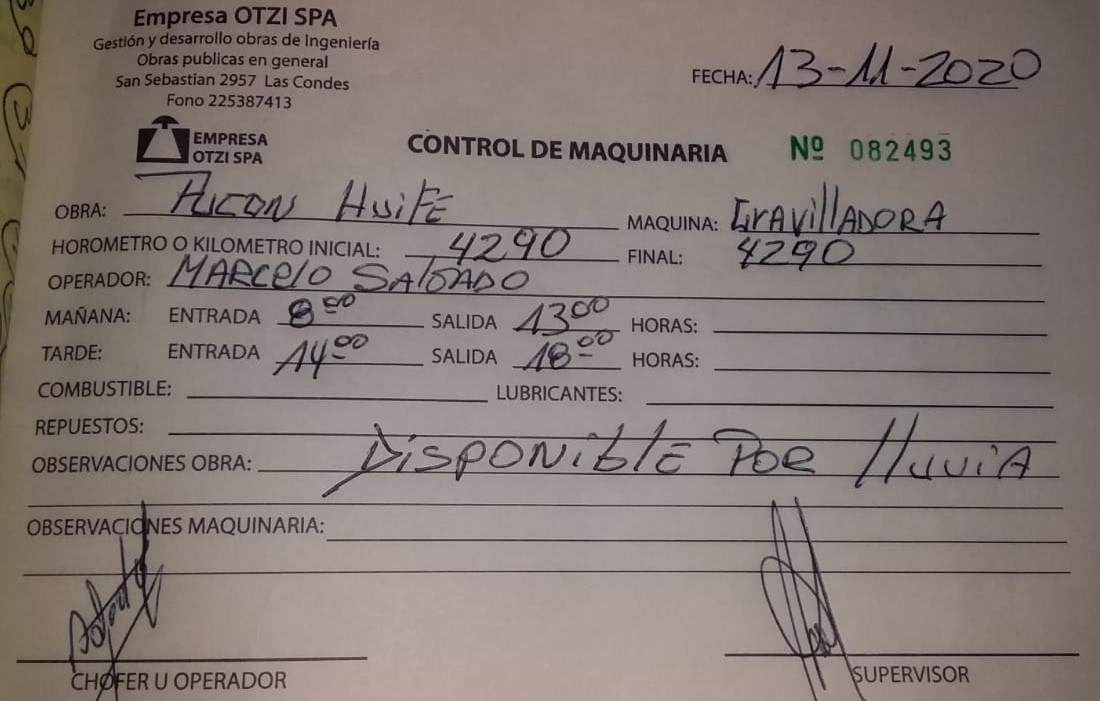 Empresa OTZI SPA
Gestión y desarrollo obras de Ingeniería
Obras publicas en general
San Sebastian 2957 Las Condes
Fono 225387413
FECHA: 13-11-2020
EMPRESA
OTZI SPA
CONTROL DE MAQUINARIA Nº 082493
OBRA: Pucon Huife MAQUINA: GravillADORA
HOROMETRO O KILOMETRO INICIAL: 4290 FINAL: 4290
OPERADOR: MARCELO SALGADO
MAÑANA: ENTRADA 8:00 SALIDA 13:00 HORAS:
TARDE: ENTRADA 14:00 SALIDA 18:00 HORAS:
COMBUSTIBLE: LUBRICANTES:
REPUESTOS:
OBSERVACIONES OBRA: Disponible Por lluvia
OBSERVACIONES MAQUINARIA:
CHOFER U OPERADOR SUPERVISOR